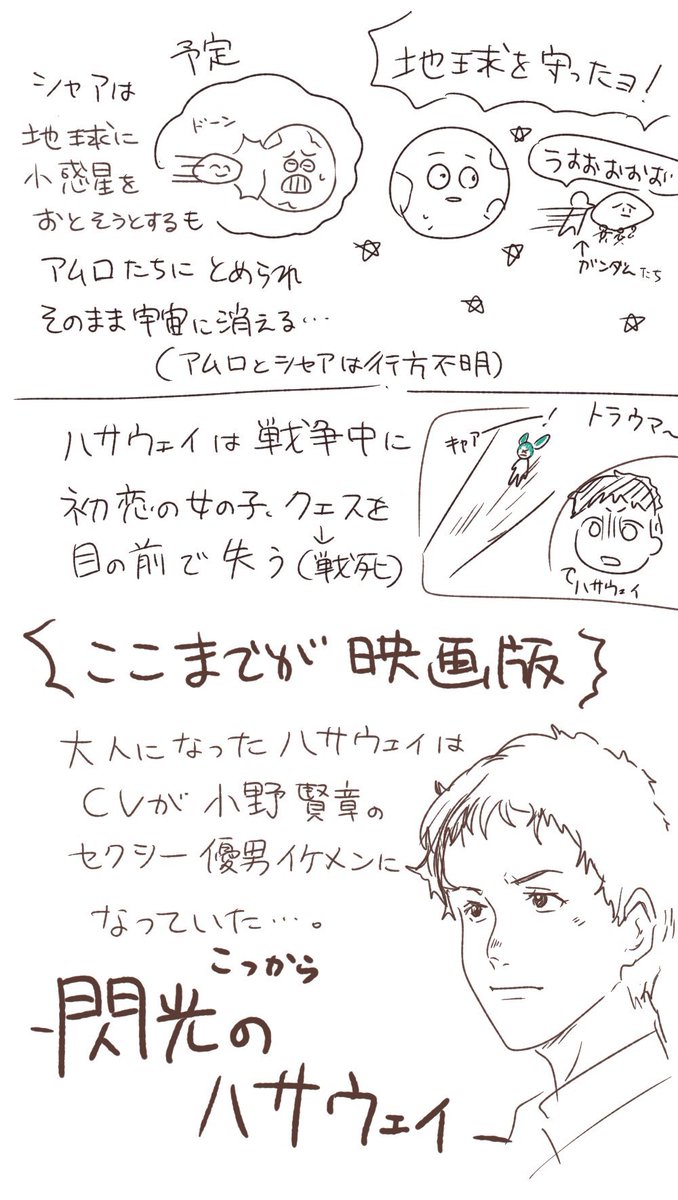 予定
シャアは
地球に
小惑星を
おとそうとするも
アムロたちに とめられ
そのまま宇宙に消える…
(アムロとシャアは行方不明)
ドーン
地球を守ったヨ!
うおおおおお
↑
ガンダムたち
ハサウェイは戦争中に
初恋の女の子、クェスを
目の前で失う(戦死)
キャア
!
トラウマ〜
ハサウェイ
ここまでが映画版
大人になったハサウェイは
CVが小野賢章の
セクシー優男イケメンに
なっていた…。
こっから
-閃光の
ハサウェイ-